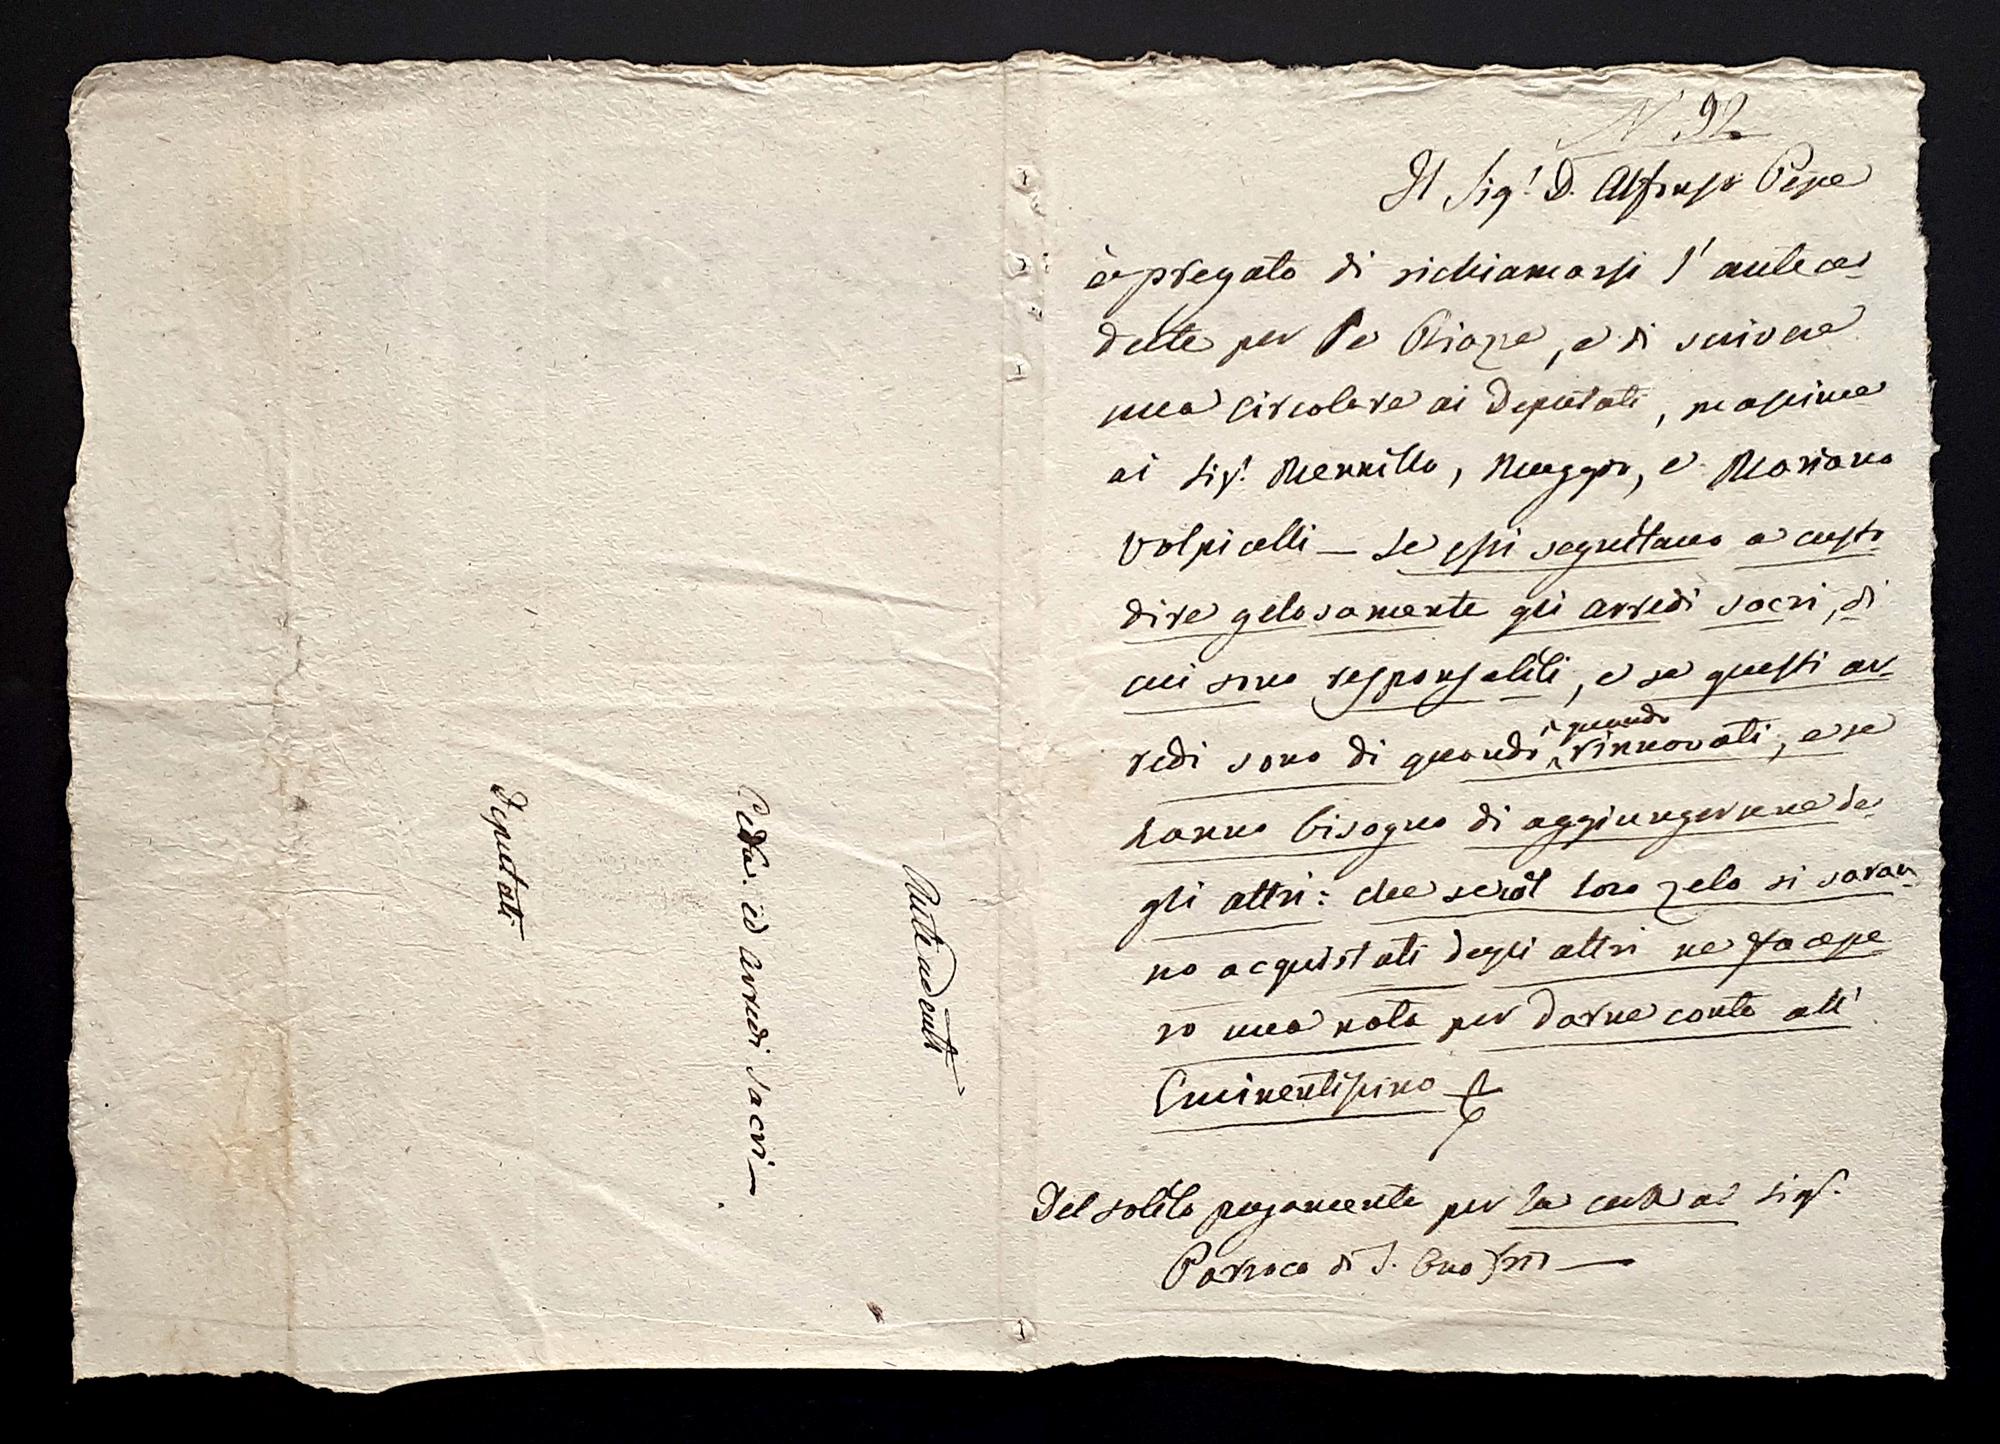 N. 92
Il Sig.r D. Alfonso Pepe
è pregato di richiamarsi l'antece-
dente per le Piazze, e di scrivere
una circolare ai Deputati, massime
ai Sig.ri Merrillo, Maggio, e Mariano
Volpicelli — Se essi seguitano a custo
dire gelosamente gli arredi sacri, di
cui sono responsabili, e se questi ar-
redi sono di quando in quando rinnovati, e se
hanno bisogno di aggiungervene de-
gli altri: che se col loro zelo si saran-
no acquistati degli altri ne facesse
ro una nota per darne conto all'
Eminentissimo
Del solito pagamento per la cura al Sig.r
Parroco di S. Onofrio —
Antecedenti
ed Arredi Sacri —
Deputati